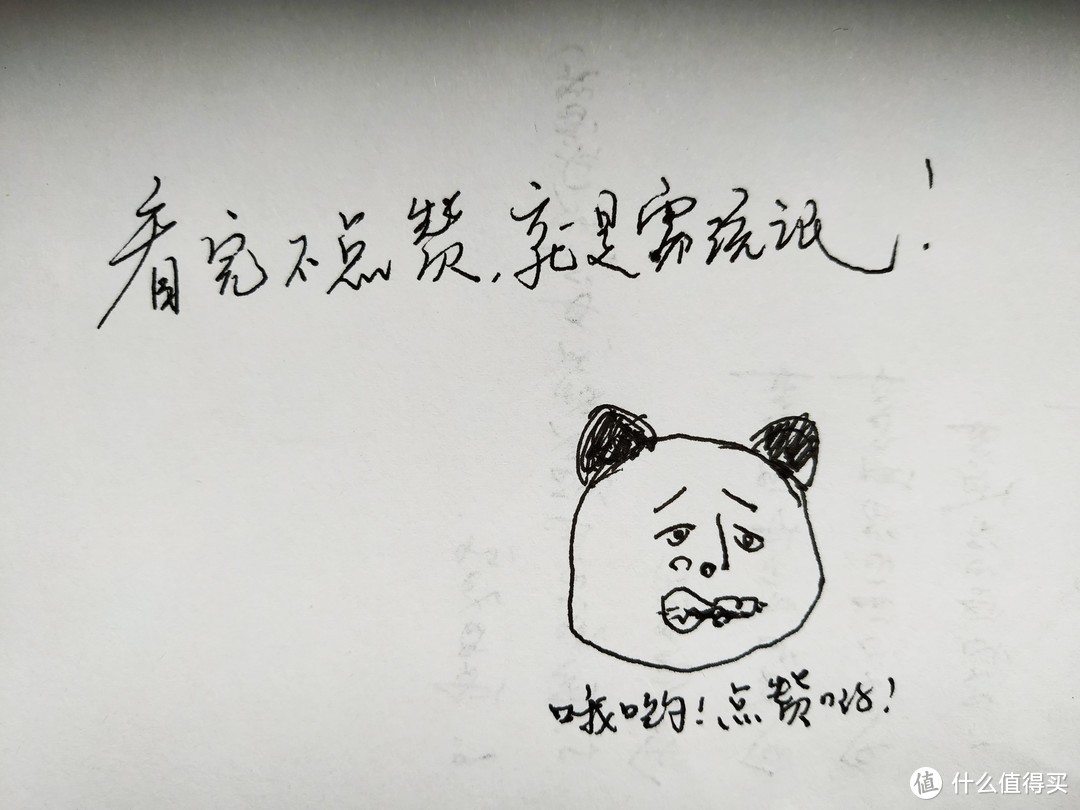 看完不点赞,就是耍流氓!
哦哟!点赞哟!
值 什么值得买